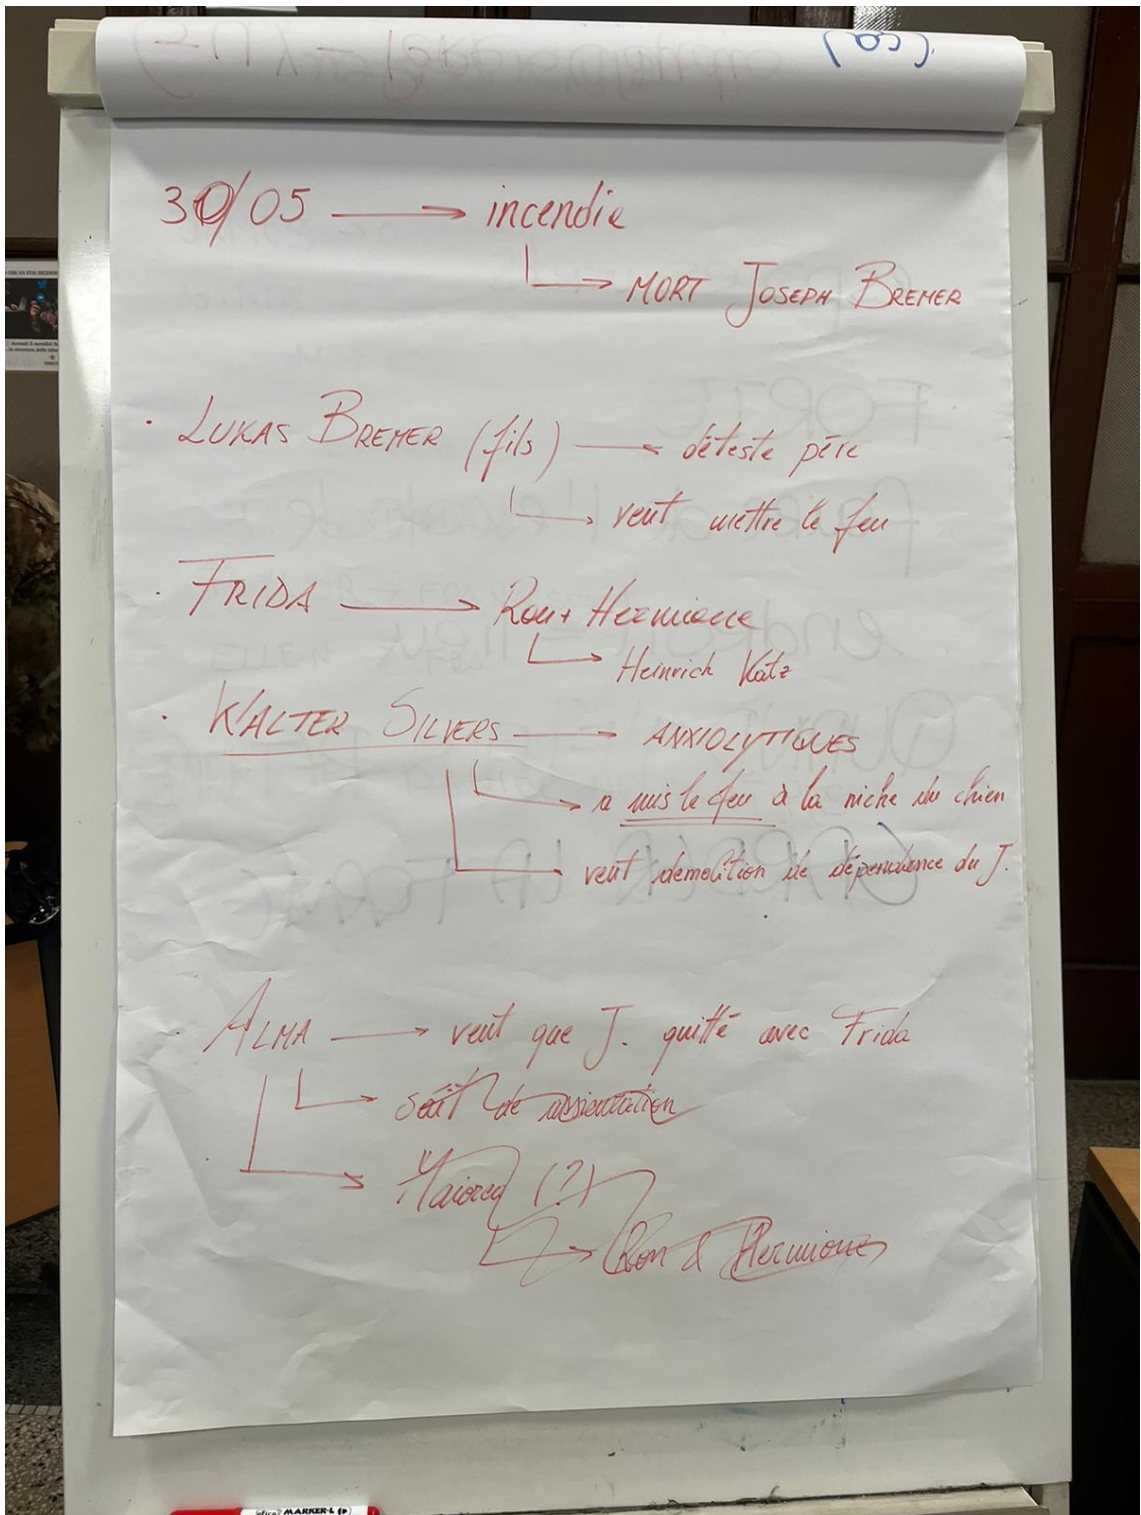 30/05 → incendie
→ MORT JOSEPH BREMER
· LUKAS BREMER (fils) → déteste père
→ veut mettre le feu
· FRIDA → Ron + Hermione
→ Heinrich Katz
· WALTER SILVERS → ANXIOLYTIQUES
→ a mis le feu à la niche du chien
→ veut demolition de dépendence du J.
· ALMA → veut que J. quitté avec Frida
→ de
→ (?)
→ Ron & Hermione
MARKER-L